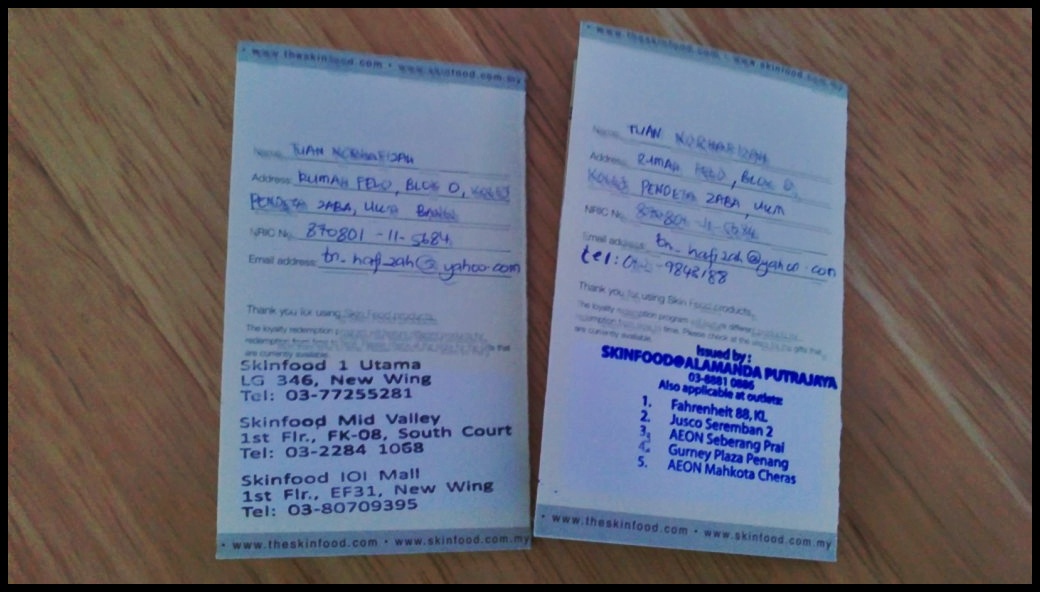 • www.theskinfood.com • www.skinfood.com.my
Name: TUAN NORHAFIZAH
Address: RUMAH FELO, BLOK O, KOLEJ
PENDETA ZABA, UKM BANGI
NRIC No. 870801-11-5684
Email address: tn_hafizah@yahoo.com
Thank you for using Skin Food products.
The loyalty redemption program
are currently available.
Skinfood 1 Utama
LG 346, New Wing
Tel: 03-77255281
Skinfood Mid Valley
1st Flr., FK-08, South Court
Tel: 03-2284 1068
Skinfood IOI Mall
1st Flr., EF31, New Wing
Tel: 03-80709395
• www.theskinfood.com • www.skinfood.com.my
• www.theskinfood.com • www.skinfood.com.my
Name: TUAN NORHAFIZAH
Address: RUMAH FELO, BLOK O,
KOLEJ PENDETA ZABA, UKM
NRIC No. 870801-11-5684
Email address: tn_hafizah@yahoo.com
tel: -9843188
Thank you for using Skin Food products.
The loyalty redemption program will feature different products for
redemption from time to time. Please check at the store for the gifts that
are currently available.
Issued by:
SKINFOOD@ALAMANDA PUTRAJAYA
03-8881 0886
Also applicable at outlets:
1. Fahrenheit 88, KL
2. Jusco Seremban 2
3. AEON Seberang Prai
4. Gurney Plaza Penang
5. AEON Mahkota Cheras
• www.theskinfood.com • www.skinfood.com.my